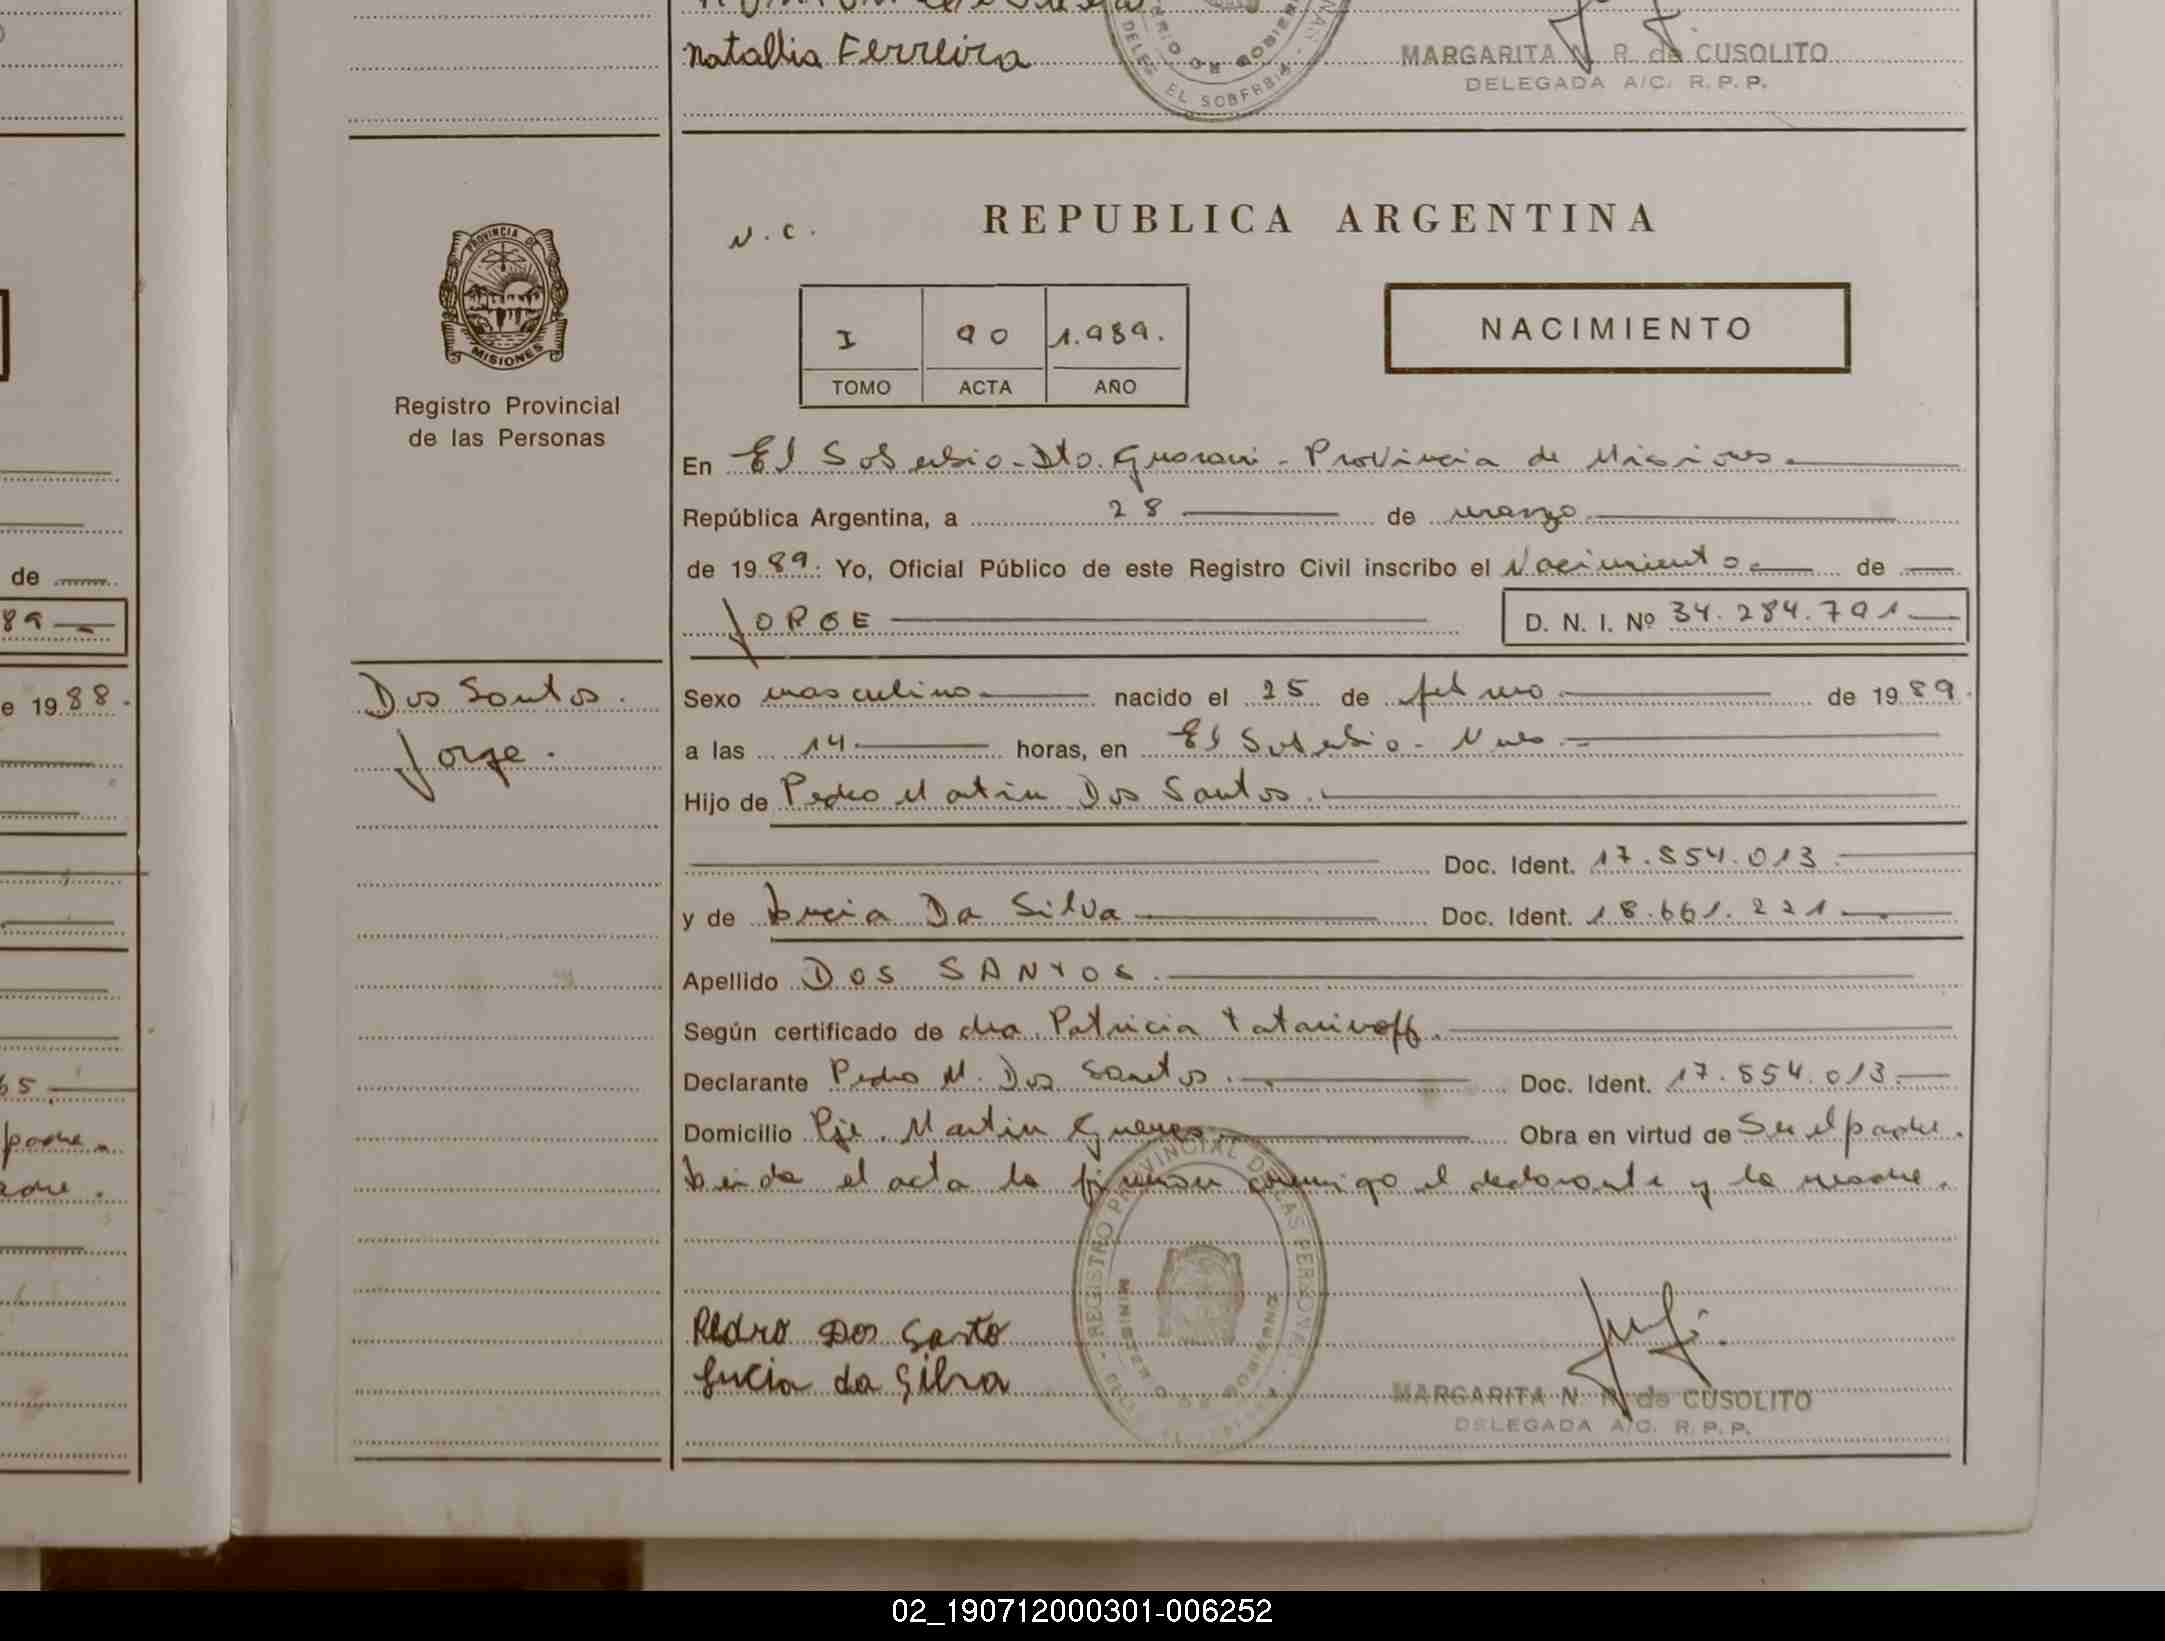 Natallia Ferreira
MARGARITA N. R. de CUSOLITO
DELEGADA A/C. R. P. P.
EL SOBERBIO
PROVINCIA DE
MISIONES
Registro Provincial
de las Personas
N.C.
REPUBLICA ARGENTINA
I 90 1.989.
TOMO ACTA AÑO
NACIMIENTO
En El Soberbio - Dto. Guarani - Provincia de Misiones
República Argentina, a 28 de marzo
de 1989. Yo, Oficial Público de este Registro Civil inscribo el Nacimiento de
JORGE D. N. I. Nº 34.284.791
Dos Santos.
Jorge.
Sexo masculino nacido el 25 de febrero de 1989.
a las 14 horas, en El Soberbio - Mnes.
Hijo de Pedro Martin Dos Santos.
Doc. Ident. 17.854.013
y de Lucia Da Silva Doc. Ident. 18.661.221
Apellido DOS SANTOS.
Según certificado de dra. Patricia Tatarinoff.
Declarante Pedro M. Dos Santos. Doc. Ident. 17.854.013.
Domicilio Pje. Martin Guemes Obra en virtud de Ser el padre.
Leida el acta la firman conmigo el declarante y la madre.
REGISTRO PROVINCIAL DE LAS PERSONAS
MINISTERIO DE GOBIERNO
Pedro Dos Santo
Lucia da Silva
MARGARITA N. R. de CUSOLITO
DELEGADA A/C. R. P. P.
de
89
e 1988.
65.
padre.
adre.
02_190712000301-006252